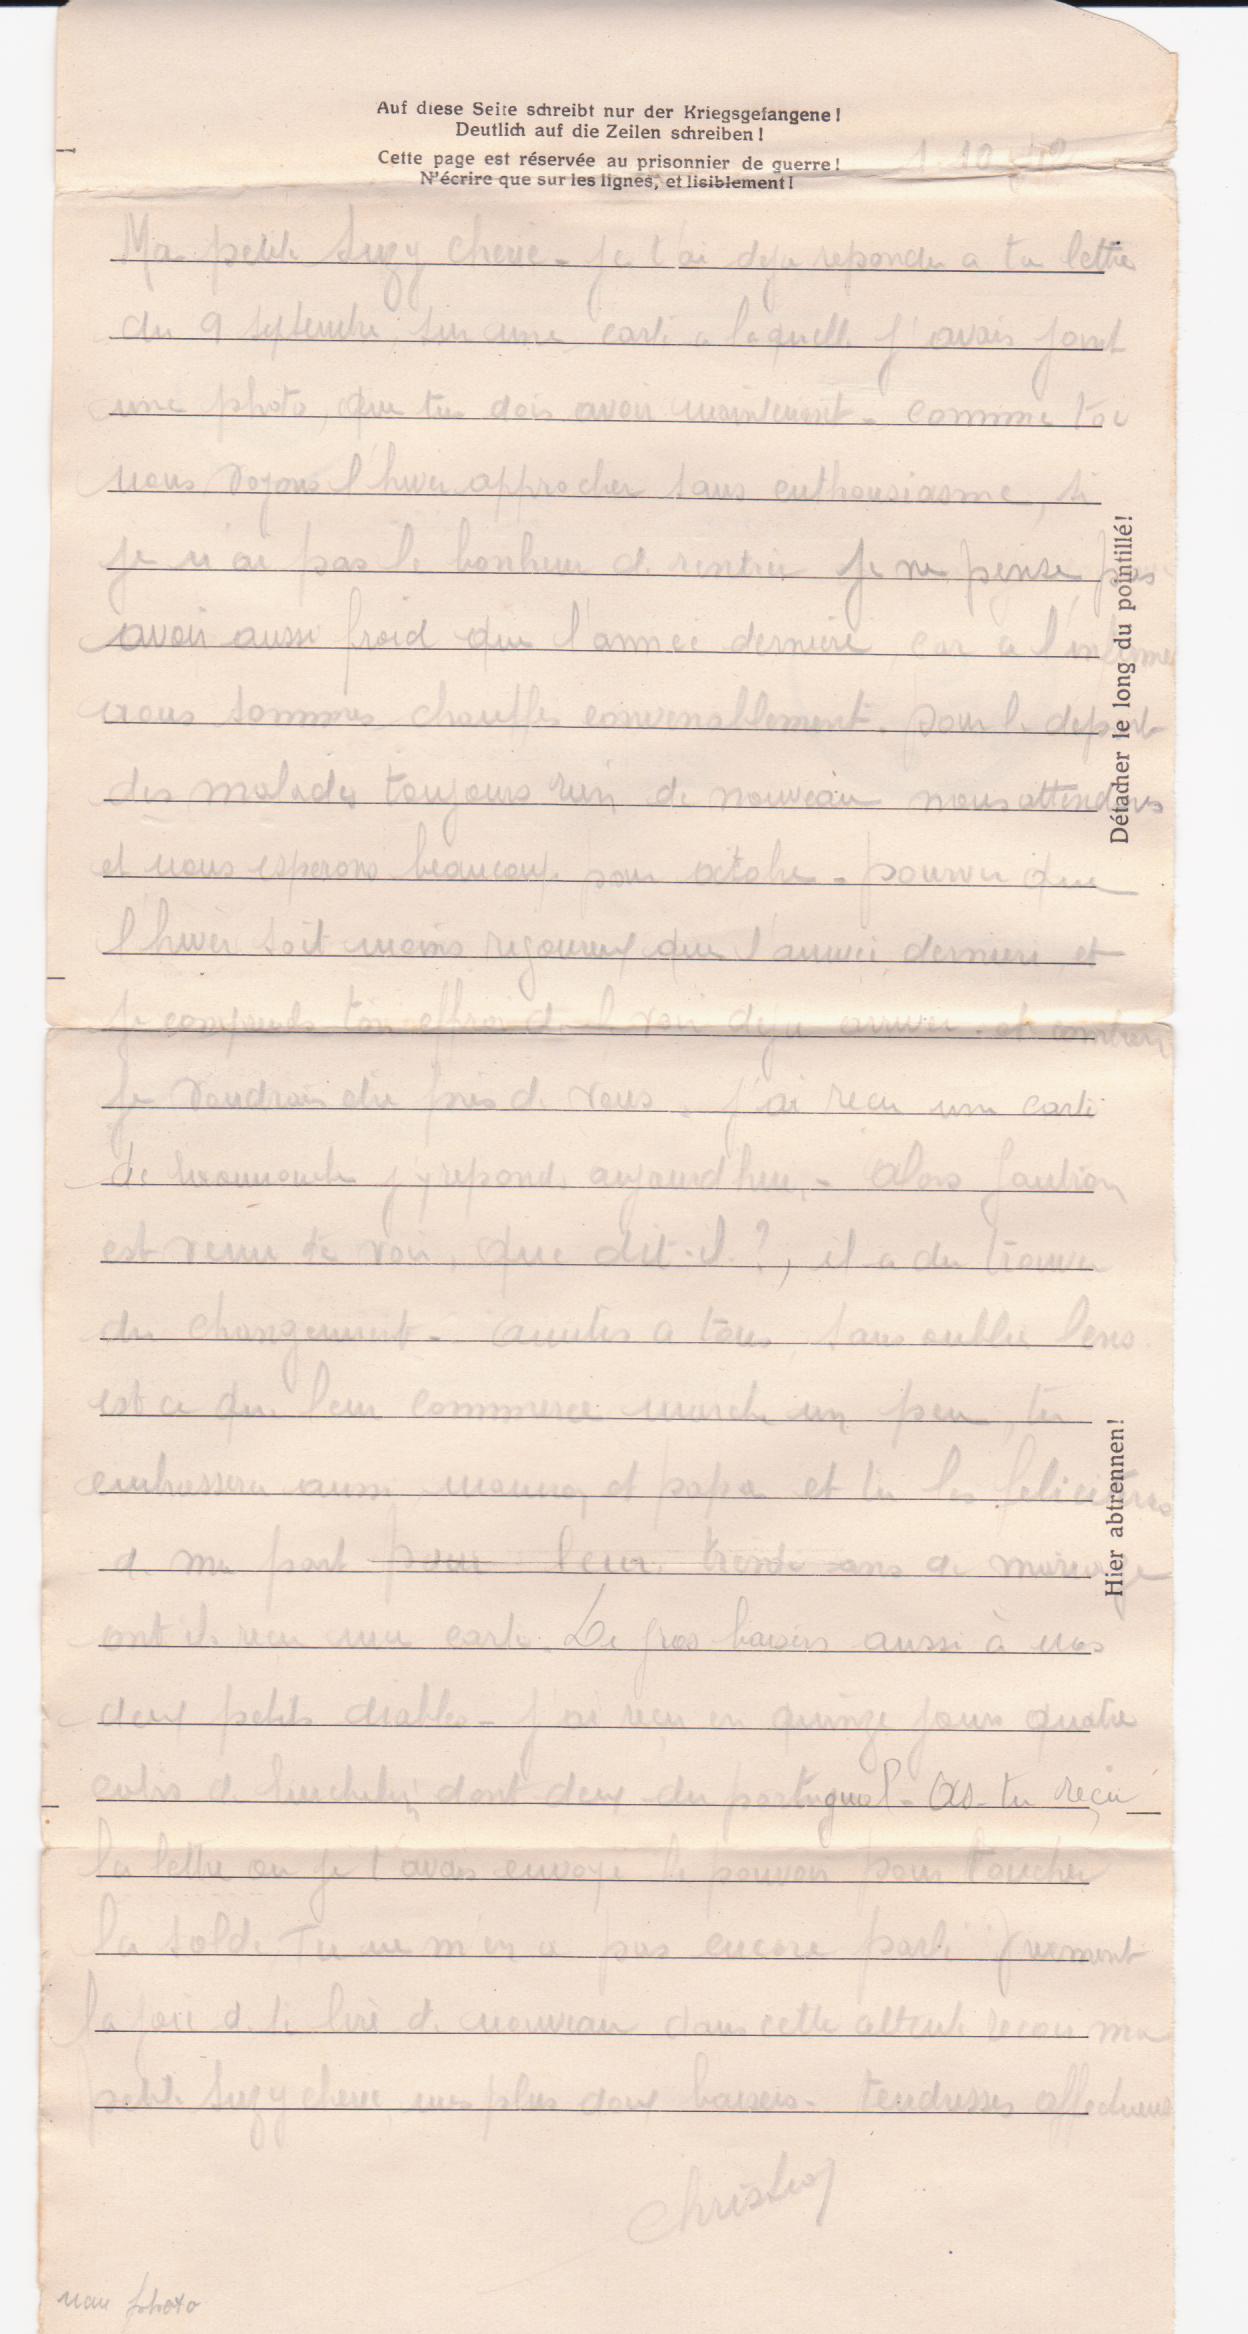 Auf diese Seite schreibt nur der Kriegsgefangene!
Deutlich auf die Zeilen schreiben!
Cette page est réservée au prisonnier de guerre!
N'écrire que sur les lignes, et lisiblement!
1. 10 42
Ma petite Suzy cherie - je t'ai deja repondu a ta lettre
du 9 septembre, sur une carte a laquelle j'avais joint
une photo, que tu dois avoir maintenant - comme toi
nous voyons l'hiver approcher sans enthousiasme, si
je n'ai pas le bonheur de rentrer je ne pense pas
avoir aussi froid que l'annee derniere, car a
nous sommes chauffes convenablement. pour le depart
des malades toujours rien de nouveau nous attendons
et nous esperons beaucoup pour octobre - pourvu que
l'hiver soit moins rigoureux que l'annee derniere et
je comprends ton effroi de le voir deja arriver. et combien
je voudrais etre pres de vous. j'ai recu une carte
de j'y reponds aujourd'hui. - Alors
est venu te voir, que dit-il?, il a du trouver
du changement - amities a tous, sans oublier
est ce que leur commerce marche un peu, tu
embrassera aussi maman et papa et tu les feliciteras
de ma part pour leur trente ans de mariage
ont ils recu ma carte. De gros baisers aussi à nos
deux petits diables - j'ai reçu en quinze jours quatre
colis de dont deux du portugual - As-tu reçu
la lettre ou je t'avais envoye le pouvoir pour toucher
la solde Tu ne m'en a pas encore parle
la joie de te lire de nouveau dans cette attente recois ma
petite Suzy cherie mes plus doux baisers - tendresses
mon photo
Détacher le long du pointillé!
Hier abtrennen!